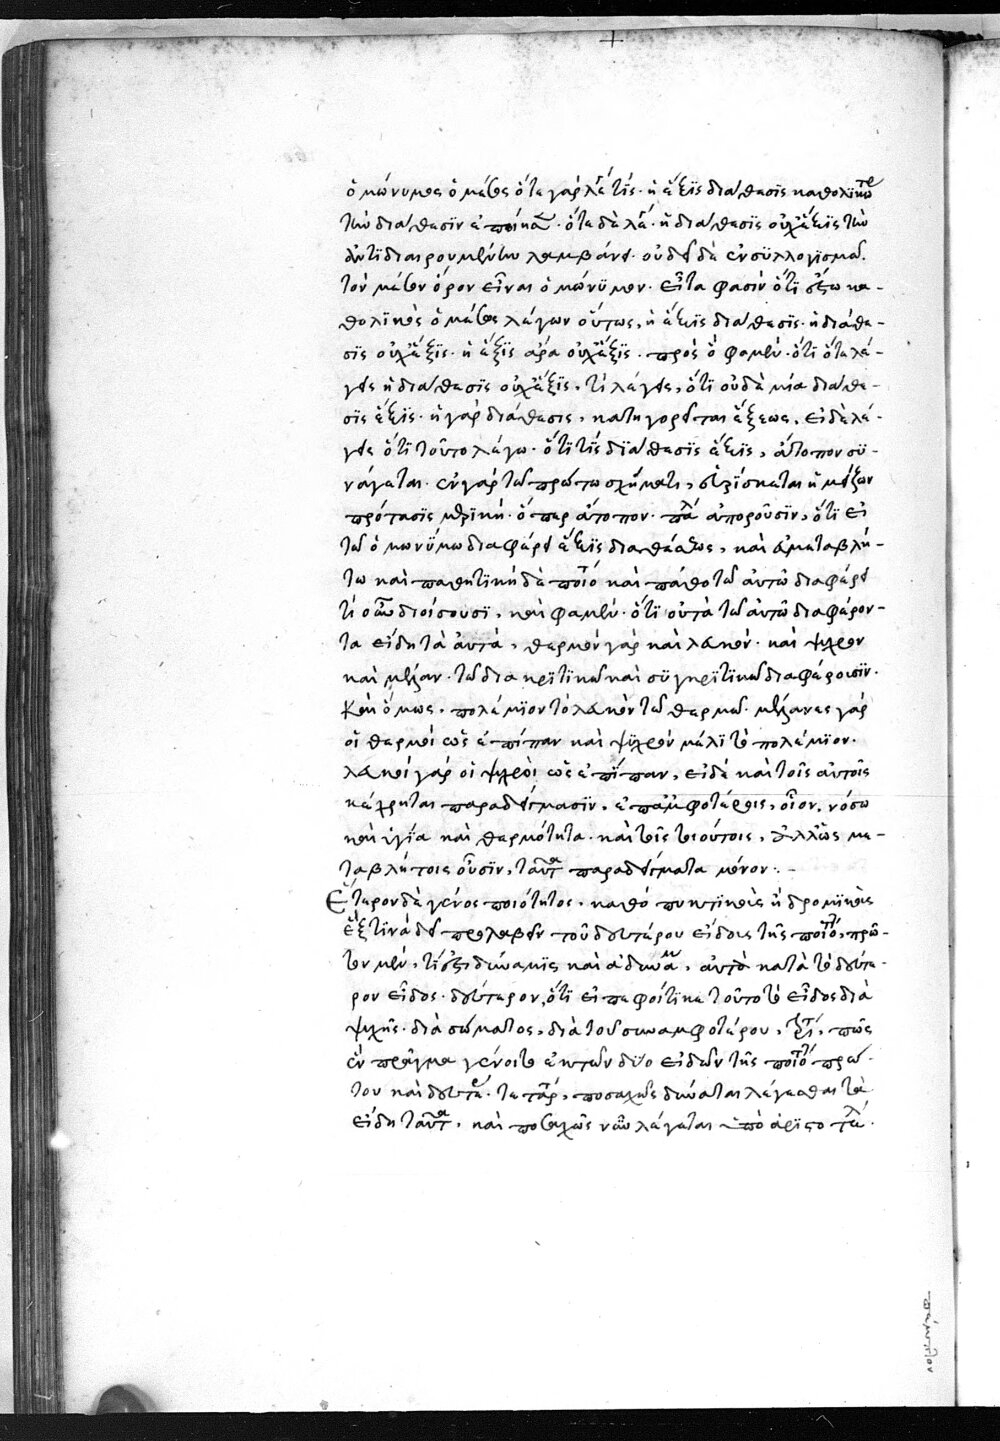 ὁμώνυμος ὁ μέσος ὅτε γὰρ λέ τίς· ἡ ἕξις διάθεσις καθολικω
τὴν διάθεσιν ἐποίησ· ὅτε δὲ λέ· ἡ διάθεσις οὐχ ἕξις τὴν
ἀντιδιαιρουμένην λαμβάνει· οὐ δεῖ δὲ ἐν συλλογισμῶ
τὸν μέσον ὅρον εἶναι ὁμώνυμον· εἶτα φασὶν ὅτι ἔξω κα-
θολικὸς ὁ μέσος λέγων οὕτως, ἡ ἕξις διάθεσις· ἡ διάθε-
σις οὐχ ἕξις· ἡ ἕξις ἄρα οὐχ ἕξις· πρὸς ὃ φαμὲν· ὅτι ὅτε λέ-
γεις ἡ διάθεσις οὐχ ἕξις, τί λέγεις, ὅτι οὐδὲ μία διάθε-
σις ἕξις· ἡ γὰρ διάθεσις, κατηγορεῖται ἕξεως, εἰ δὲ λέ-
γεις ὅτι τοῦτο λέγω· ὅτι τίς διάθεσις ἕξις, ἄτοπον συ-
νάγεται· ἐν γὰρ τῶ πρώτω σχήματι, εὑρίσκεται ἡ μείζων
πρότασις μερική· ὅπερ ἄτοπον· πλ ἀποροῦσιν, ὅτι εἰ
τῶ ὁμωνύμω διαφέρει ἕξις διαθέσεως, καὶ εὐμεταβλή-
τω καὶ παθητικὴ δὲ ποιό καὶ πάθος τῶ αὐτῶ διαφέρει
τί οὖν διοίσουσι, καὶ φαμὲν· ὅτι οὐ τὰ τῶ αὐτῶ διαφέρον-
τα εἴδη τὰ αὐτὰ, θερμὸν γὰρ καὶ λευκόν· καὶ ψυχρὸν
καὶ μέλαν· τῶ διακριτικῶ καὶ συγκριτικῶ διαφέρουσιν·
καὶ ὅμως, πολέμιον τὸ λευκὸν τῶ θερμῶ· μέλανες γὰρ
οἱ θερμοὶ ὡς ἐπίπαν καὶ ψυχρὸν μέλανι τὸ πολέμιον·
λευκοὶ γὰρ οἱ ψυχροὶ ὡς ἐπίπαν, εἰ δὲ καὶ τοῖς αὐτοῖς
κέχρηται παραδείγμασιν, ἐπ' ἀμφοτέροις, οἷον, νόσω
καὶ ὑγεία καὶ θερμότητα· καὶ τοῖς τοιούτοις, ἀλλ' ὡς με-
ταβλήτοις οὖσιν, ταῦτα παραδείγματα μόνον·
Ἕτερον δὲ γένος ποιότητος· καθὸ πυκτικοὺς ἢ δρομικοὺς
ἕξ τινὰ δεῖ προλαβεῖν τοῦ δευτέρου εἴδους τῆς ποιότ, πρῶ-
τον μὲν, τί ἐστι δύναμις καὶ ἀδυναμ, αὐτὸ κατὰ τὸ δεύτε-
ρον εἶδος· δεύτερον, ὅτι ἐπιφοιτᾶ καὶ τοῦτο τὸ εἶδος διὰ
ψυχῆς· διὰ σώματος, διὰ τοῦ συναμφοτέρου, τρι, πῶς
ἓν πρᾶγμα γένοιτο ἐκ τῶν δύο εἰδῶν τῆς ποιότ πρώ-
του καὶ δευτέ· τεταρ, ποσαχῶς δύναται λέγεσθαι τὰ
εἴδη ταῦτα, καὶ ποσαχῶς νῦν λέγεται ὑπὸ ἀριστοτέλ·